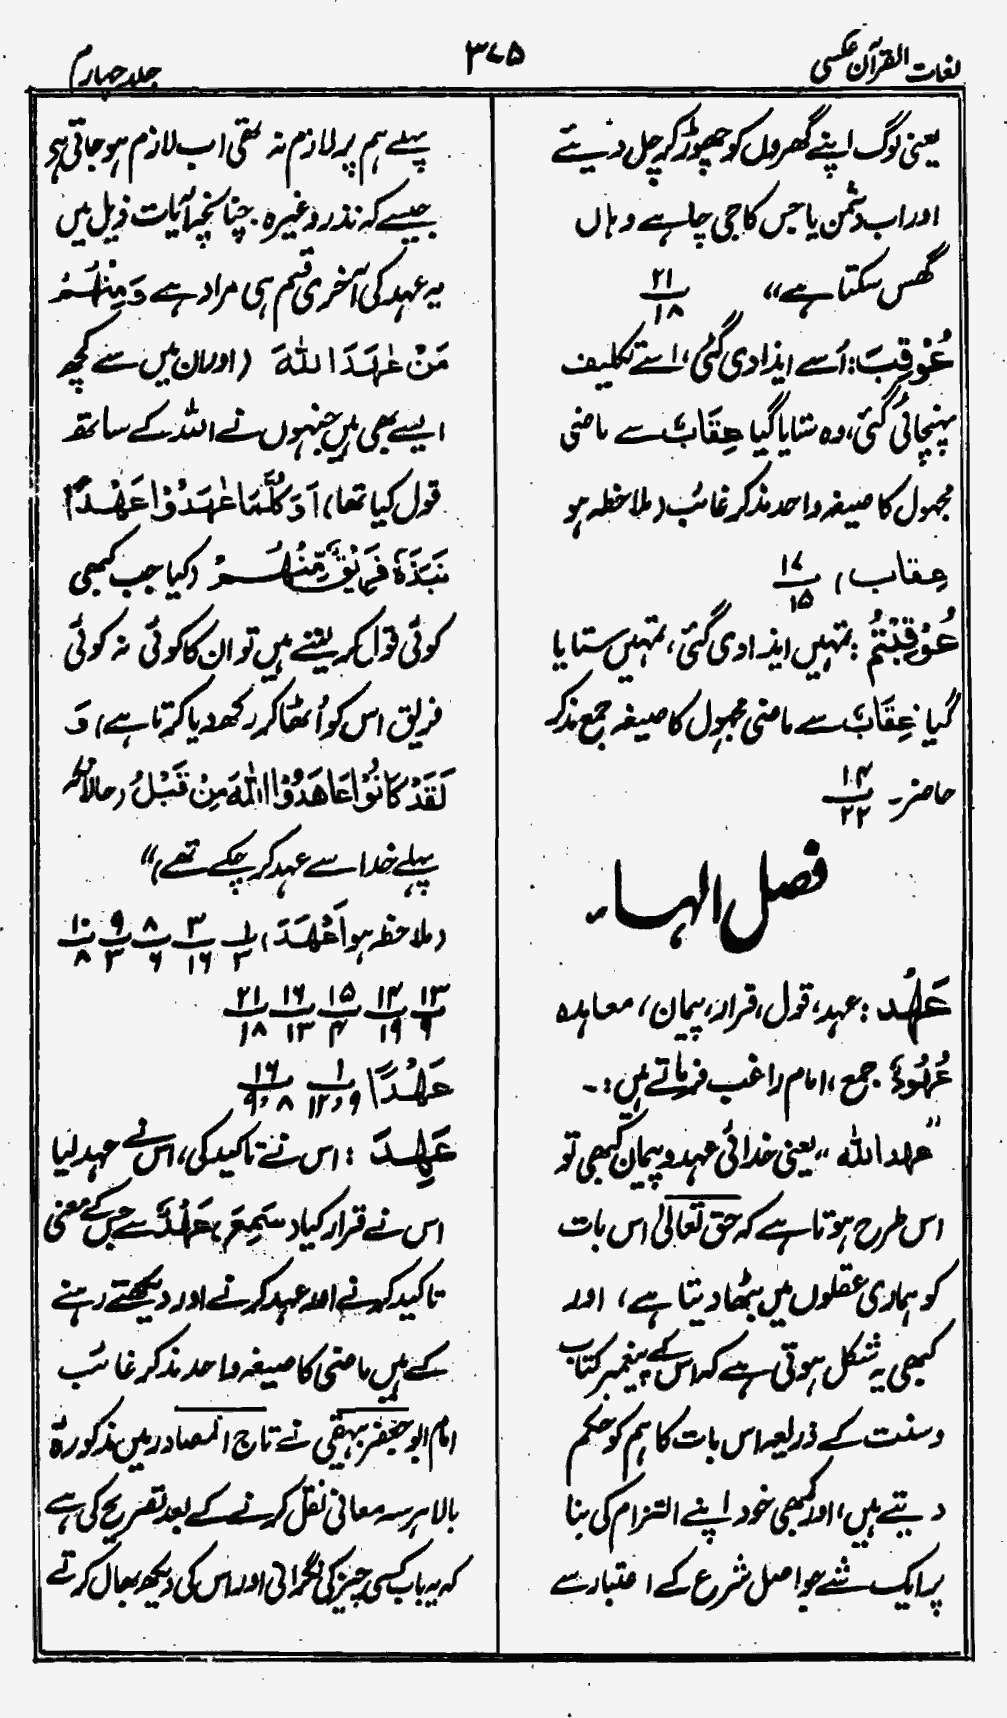 لغات القرآن عکسی
۳۷۵
جلد چہارم
یعنی لوگ اپنے گھروں کو چھوڑ کر چل دیئے
اور اب دشمن یا جس کا جی چاہے وہاں
گھس سکتا ہے،، ۲۱/۱۸
عُوْقِبَ: اُسے ایذا دی گئی، اسے تکلیف
پہنچائی گئی، وہ ستایا گیا عِقَابٌ سے ماضی
مجہول کا صیغہ واحد مذکر غائب (ملاحظہ ہو
عِقاب) ۱۷/۱۵
عُوْقِبْتُمْ: تمہیں ایذا دی گئی، تمہیں ستایا
گیا عِقَابٌ سے ماضی مجہول کا صیغہ جمع مذکر
حاضر۔ ۱۴/۲۲
فصل الہا۔
عَہْد: عہد، قول، قرار، پیمان، معاہدہ
عُہُوْدٌ جمع، امام راغب فرماتے ہیں:۔
”عہد اللہ“ یعنی خدائی عہد و پیمان کبھی تو
اس طرح ہوتا ہے کہ حق تعالیٰ اس بات
کو ہماری عقلوں میں بٹھا دیتا ہے، اور
کبھی یہ شکل ہوتی ہے کہ اس کے پیغمبر کتاب
و سنت کے ذریعہ اس بات کا ہم کو حکم
دیتے ہیں، اور کبھی خود اپنے التزام کی بنا
پر ایک شے جو اصل شرع کے اعتبار سے
پہلے ہم پر لازم نہ تھی اب لازم ہو جاتی ہے
جیسے کہ نذر وغیرہ۔ چنانچہ آیات ذیل میں
یہ عہد کی آخری قسم ہی مراد ہے وَمِنْہُمْ
مَنْ عٰہَدَ اللہَ (اور ان میں سے کچھ
ایسے بھی ہیں جنہوں نے اللہ کے ساتھ
قول کیا تھا) اَوَکُلَّمَا عٰہَدُوْا عَہْدًا
نَبَذَہٗ فَرِیْقٌ مِّنْہُمْ (کیا جب کبھی
کوئی قول کر لیتے ہیں تو ان کا کوئی نہ کوئی
فریق اس کو اُٹھا کر رکھ دیا کرتا ہے) وَ
لَقَدْ کَانُوْا عَاہَدُوْا اللہَ مِنْ قَبْلُ (حالانکہ
پہلے خدا سے عہد کر چکے تھے)“
(ملاحظہ ہو اَعْہَدَ) ۱/۳ ۳/۱۶ ۸/۶ ۹/۳ ۱۰/۸
۱۳/۹ ۱۴/۱۹ ۱۵/۴ ۱۶/۱۳ ۲۱/۱۸
عَہْدًا ۱/۹و۱۲ ۱۶/۸و۹
عَہِدَ: اس نے تاکید کی، اس نے عہد لیا
اس نے قرار کیا (سَمِعَ) عَہْدٌ سے جس کے معنی
تاکید کرنے اور عہد کرنے اور دیکھتے رہنے
کے ہیں ماضی کا صیغہ واحد مذکر غائب
امام ابو جعفر بیہقی نے تاج المصادر میں مذکورۂ
بالا ہر سہ معانی نقل کرنے کے بعد تصریح کی ہے
کہ یہ باب کسی چیز کی نگرانی اور اس کی دیکھ بھال کرتے